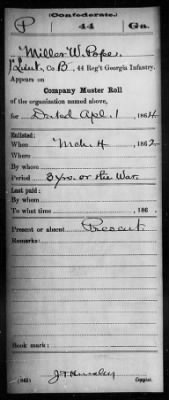 (Confederate.)
P 44 Ga.
Miller W. Pope,
1 Lieut., Co. B, 44 Reg't Georgia Infantry.
Appears on
Company Muster Roll
of the organization named above,
for Dated Apl. 1, 1864.
Enlisted:
When Mch. 4, 1862.
Where
By whom
Period 3 yrs. or the War.
Last paid:
By whom
To what time , 186 .
Present or absent Present
Remarks:
Book mark:
(642) Copyist.